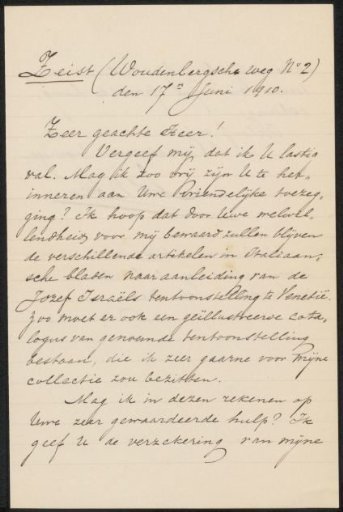 Zeist (Woudenbergsche weg No 2)
den 17en Juni 1910.
Zeer geachte Heer!
Vergeef mij dat ik U lastig
val. Mag ik zoo vrij zijn U te her-
inneren aan Uwe vriendelijke toezeg-
ging? Ik hoop dat door Uwe welwil-
lendheid voor mij bewaard zullen blijven
de verschillende artikelen in Italiaan-
sche bladen naar aanleiding van de
Jozef Israëls tentoonstelling te Venetië.
Zoo moet er ook een geïllustreerde cata-
logus van genoemde tentoonstelling
bestaan, die ik zeer gaarne voor mijne
collectie zou bezitten.
Mag ik in dezen rekenen op
Uwe zeer gewaardeerde hulp? Ik
geef U de verzekering van mijne